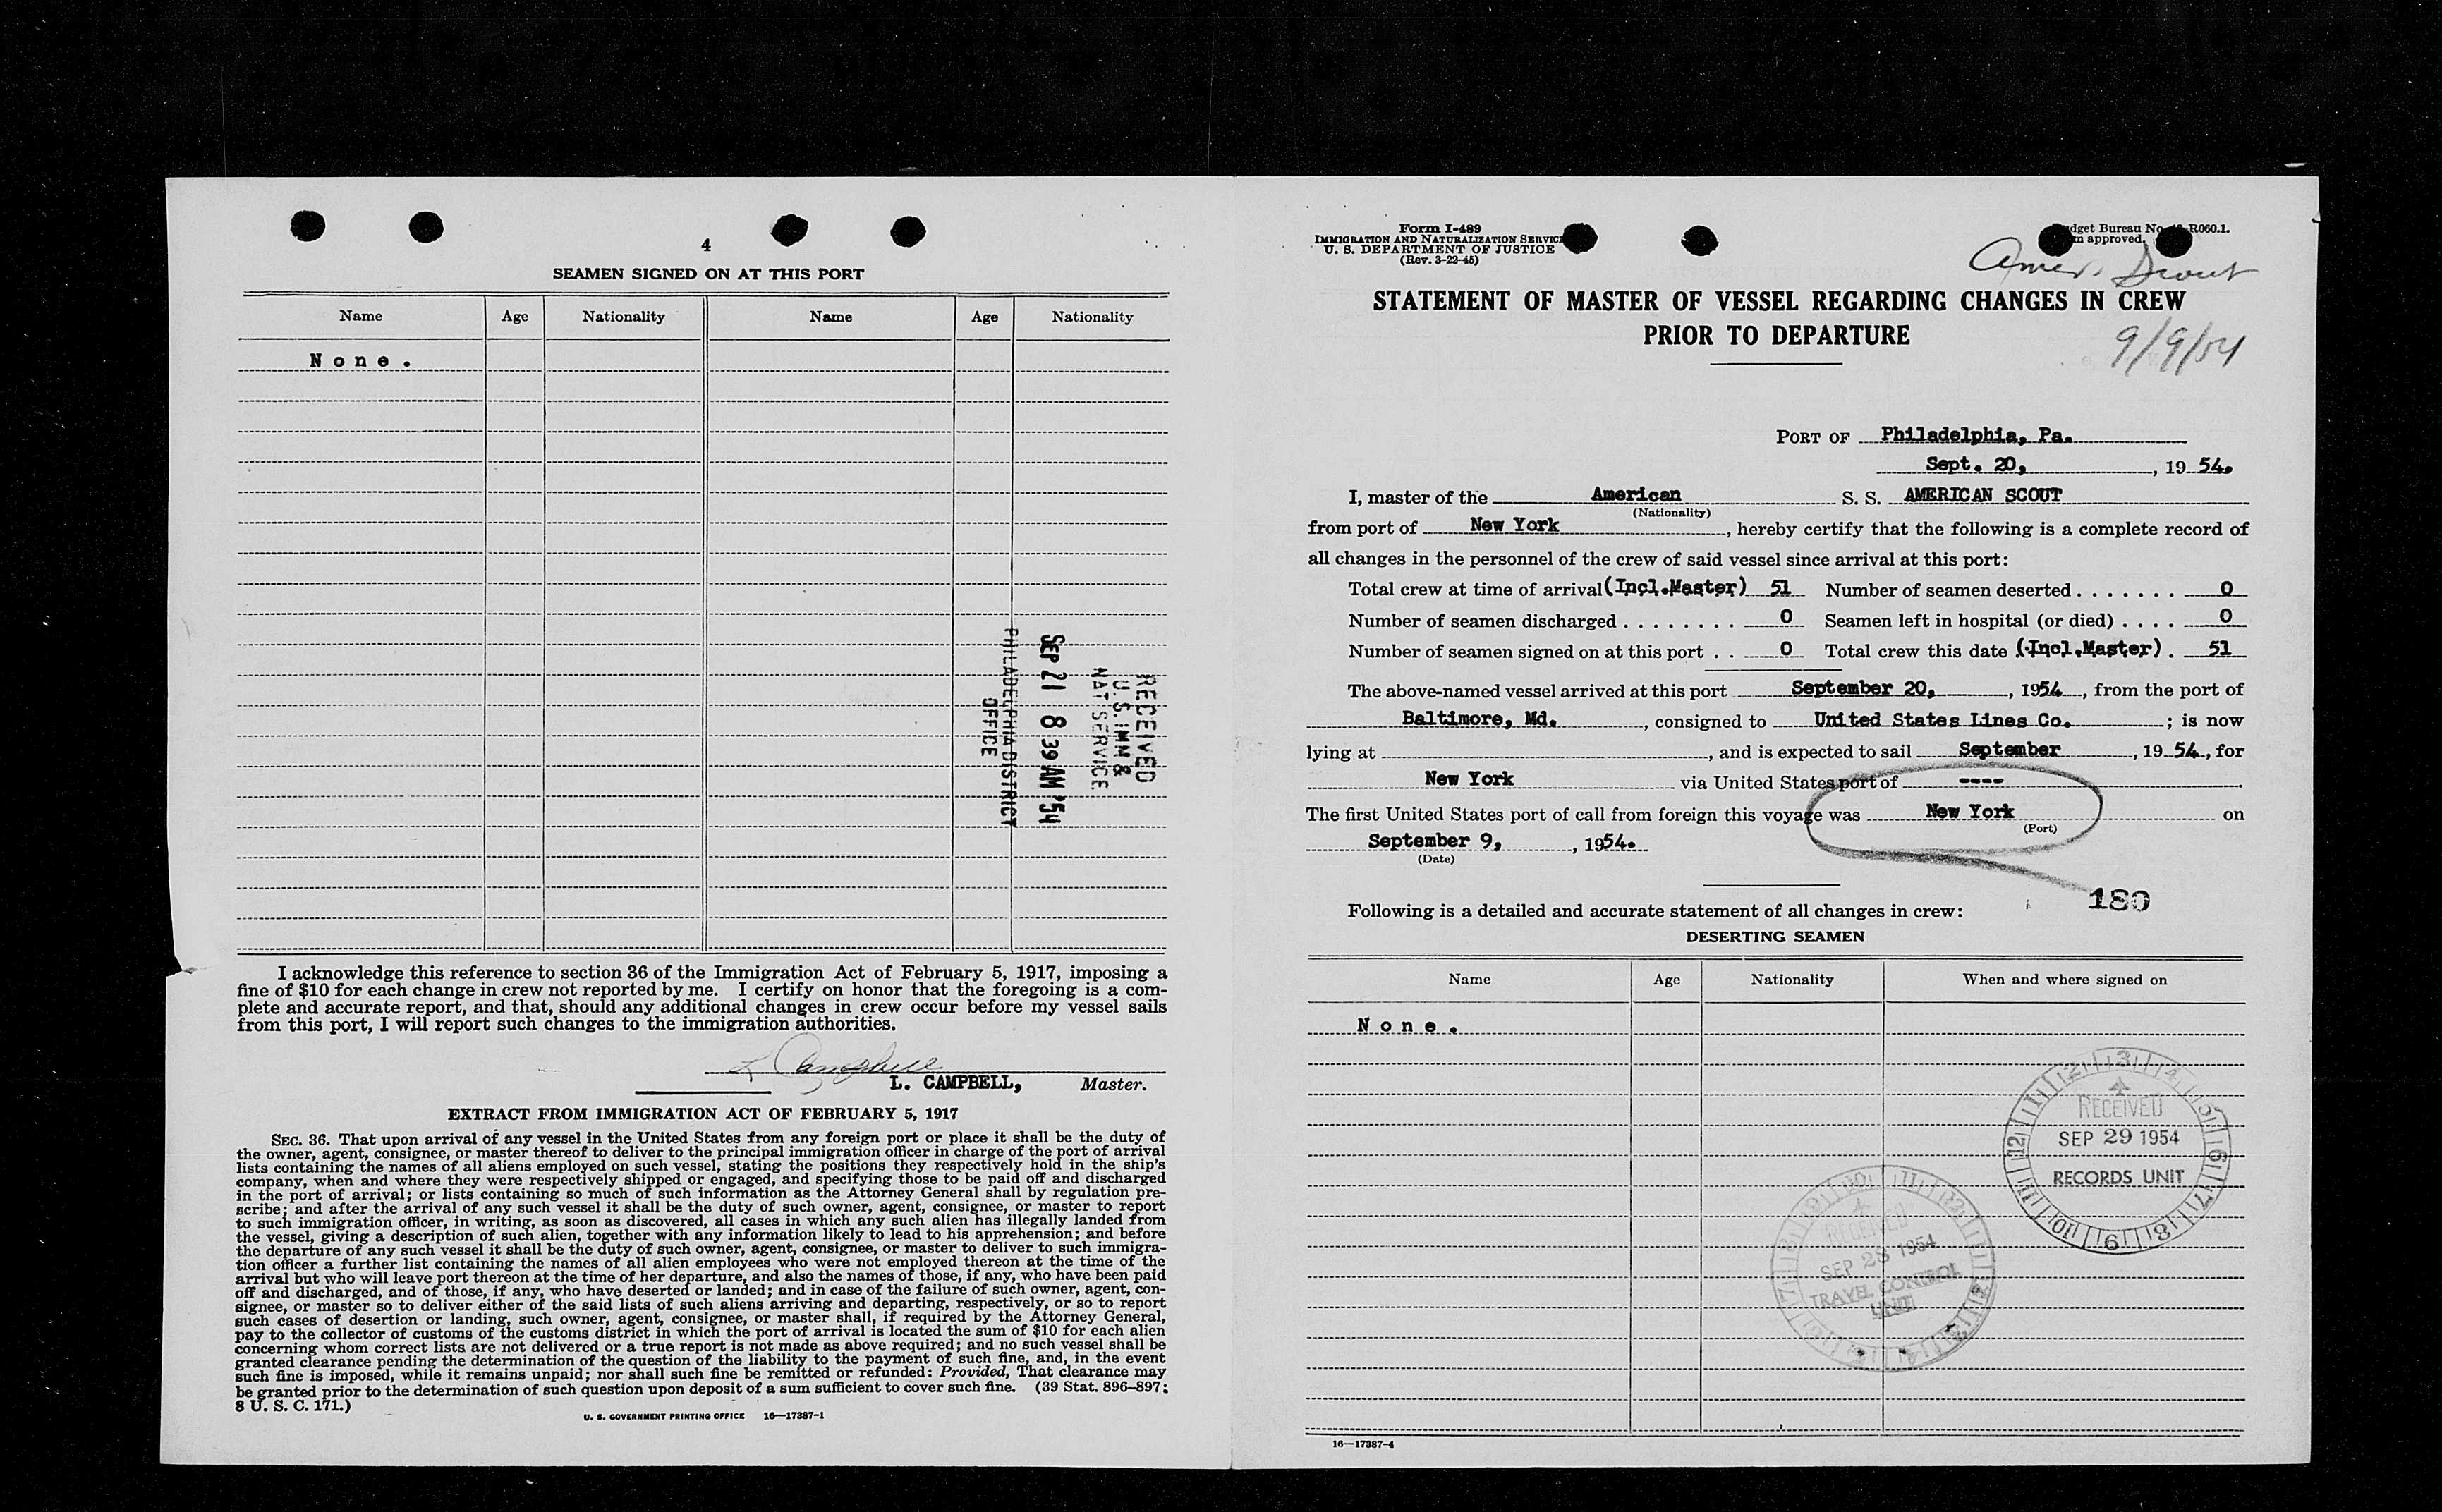 4
SEAMEN SIGNED ON AT THIS PORT
Name Age Nationality Name Age Nationality
None.
RECEIVED
U. S. IMM &
NAT SERVICE
SEP 21 8 39 AM '54
PHILADELPHIA DISTRICT
OFFICE
I acknowledge this reference to section 36 of the Immigration Act of February 5, 1917, imposing a
fine of $10 for each change in crew not reported by me. I certify on honor that the foregoing is a com-
plete and accurate report, and that, should any additional changes in crew occur before my vessel sails
from this port, I will report such changes to the immigration authorities.
L Campbell
L. CAMPBELL, Master.
EXTRACT FROM IMMIGRATION ACT OF FEBRUARY 5, 1917
SEC. 36. That upon arrival of any vessel in the United States from any foreign port or place it shall be the duty of
the owner, agent, consignee, or master thereof to deliver to the principal immigration officer in charge of the port of arrival
lists containing the names of all aliens employed on such vessel, stating the positions they respectively hold in the ship's
company, when and where they were respectively shipped or engaged, and specifying those to be paid off and discharged
in the port of arrival; or lists containing so much of such information as the Attorney General shall by regulation pre-
scribe; and after the arrival of any such vessel it shall be the duty of such owner, agent, consignee, or master to report
to such immigration officer, in writing, as soon as discovered, all cases in which any such alien has illegally landed from
the vessel, giving a description of such alien, together with any information likely to lead to his apprehension; and before
the departure of any such vessel it shall be the duty of such owner, agent, consignee, or master to deliver to such immigra-
tion officer a further list containing the names of all alien employees who were not employed thereon at the time of the
arrival but who will leave port thereon at the time of her departure, and also the names of those, if any, who have been paid
off and discharged, and of those, if any, who have deserted or landed; and in case of the failure of such owner, agent, con-
signee, or master so to deliver either of the said lists of such aliens arriving and departing, respectively, or so to report
such cases of desertion or landing, such owner, agent, consignee, or master shall, if required by the Attorney General,
pay to the collector of customs of the customs district in which the port of arrival is located the sum of $10 for each alien
concerning whom correct lists are not delivered or a true report is not made as above required; and no such vessel shall be
granted clearance pending the determination of the question of the liability to the payment of such fine, and, in the event
such fine is imposed, while it remains unpaid; nor shall such fine be remitted or refunded: Provided, That clearance may
be granted prior to the determination of such question upon deposit of a sum sufficient to cover such fine. (39 Stat. 896–897;
8 U. S. C. 171.)
U. S. GOVERNMENT PRINTING OFFICE 16—17387-1
Form I-489
IMMIGRATION AND NATURALIZATION SERVICE
U. S. DEPARTMENT OF JUSTICE
(Rev. 3-22-45)
dget Bureau No. R060.1.
approved.
Amer. Scout
STATEMENT OF MASTER OF VESSEL REGARDING CHANGES IN CREW
PRIOR TO DEPARTURE
9/9/54
PORT OF Philadelphia, Pa.
Sept. 20, , 19 54.
I, master of the American S. S. AMERICAN SCOUT
(Nationality)
from port of New York , hereby certify that the following is a complete record of
all changes in the personnel of the crew of said vessel since arrival at this port:
Total crew at time of arrival (Incl.Master) 51 Number of seamen deserted . . . . . . . 0
Number of seamen discharged . . . . . . . . 0 Seamen left in hospital (or died) . . . . 0
Number of seamen signed on at this port . . 0 Total crew this date (Incl.Master) . 51
The above-named vessel arrived at this port September 20, , 1954 , from the port of
Baltimore, Md. , consigned to United States Lines Co. ; is now
lying at , and is expected to sail September , 19 54 , for
New York via United States port of ----
The first United States port of call from foreign this voyage was New York on
(Port)
September 9, , 1954.
(Date)
180
Following is a detailed and accurate statement of all changes in crew:
DESERTING SEAMEN
Name Age Nationality When and where signed on
None.
RECEIVED
SEP 29 1954
RECORDS UNIT
RECEIVED
SEP 28 1954
TRAVEL CONTROL
UNIT
16—17387-4